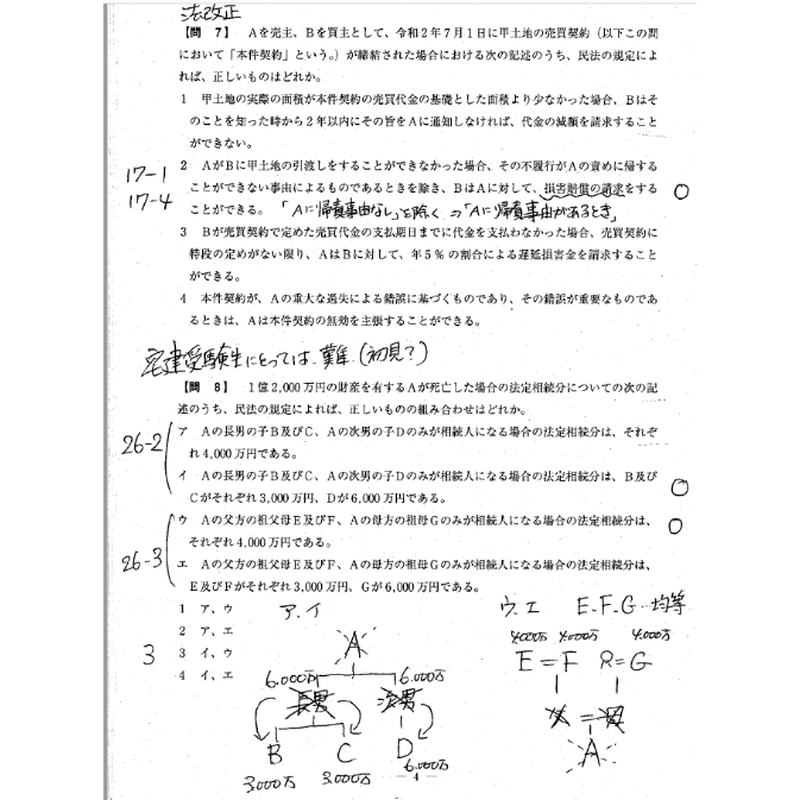 法改正
【問 7】 Aを売主、Bを買主として、令和2年7月1日に甲土地の売買契約(以下この問
において「本件契約」という。)が締結された場合における次の記述のうち、民法の規定によ
れば、正しいものはどれか。
1 甲土地の実際の面積が本件契約の売買代金の基礎とした面積より少なかった場合、Bはそ
のことを知った時から2年以内にその旨をAに通知しなければ、代金の減額を請求すること
ができない。
17-1
17-4
2 AがBに甲土地の引渡しをすることができなかった場合、その不履行がAの責めに帰する
ことができない事由によるものであるときを除き、BはAに対して、損害賠償の請求をする
ことができる。 「Aに帰責事由なし」を除く ⇒「Aに帰責事由があるとき」
○
3 Bが売買契約で定めた売買代金の支払期日までに代金を支払わなかった場合、売買契約に
特段の定めがない限り、AはBに対して、年5%の割合による遅延損害金を請求すること
ができる。
4 本件契約が、Aの重大な過失による錯誤に基づくものであり、その錯誤が重要なものであ
るときは、Aは本件契約の無効を主張することができる。
宅建受験生にとっては、難(初見?)
【問 8】 1億2,000万円の財産を有するAが死亡した場合の法定相続分についての次の記
述のうち、民法の規定によれば、正しいものの組み合わせはどれか。
26-2
ア Aの長男の子B及びC、Aの次男の子Dのみが相続人になる場合の法定相続分は、それぞ
れ4,000万円である。
イ Aの長男の子B及びC、Aの次男の子Dのみが相続人になる場合の法定相続分は、B及び
Cがそれぞれ3,000万円、Dが6,000万円である。
○
26-3
ウ Aの父方の祖父母E及びF、Aの母方の祖母Gのみが相続人になる場合の法定相続分は、
それぞれ4,000万円である。
○
エ Aの父方の祖父母E及びF、Aの母方の祖母Gのみが相続人になる場合の法定相続分は、
E及びFがそれぞれ3,000万円、Gが6,000万円である。
1 ア、ウ
2 ア、エ
3 イ、ウ
4 イ、エ
3
ア、イ
A
6,000万 6,000万
長男 次男
B C D
3,000万 3,000万 6,000万
ウ、エ E、F、G 均等
4,000万 4,000万 4,000万
E=F =G
父=母
A
— 4 —